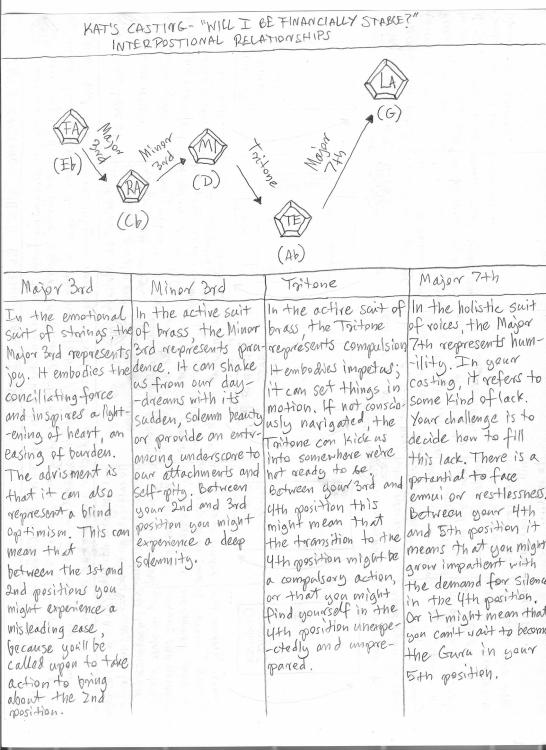 KAT'S CASTING - "WILL I BE FINANCIALLY STABLE?"
INTERPOSTIONAL RELATIONSHIPS
LA
(G)
FA
(Eb)
Major
3rd
RA
(Cb)
Minor
3rd
MI
(D)
Tritone
TE
(Ab)
Major
7th
Major 3rd
In the emotional
suit of strings, the
Major 3rd represents
joy. It embodies the
conciliating-force
and inspires a light-
ening of heart, an
easing of burden.
The advisment is
that it can also
represent a blind
optimism. This can
mean that
between the 1st and
2nd positions you
might experience a
misleading ease,
because you'll be
called upon to take
action to bring
about the 2nd
position.
Minor 3rd
In the active suit
of brass, the Minor
3rd represents pru-
dence. It can shake
us from our day-
-dreams with its
sudden, solemn beauty
or provide an entr-
ancing underscore to
our attachments and
self-pity. Between
your 2nd and 3rd
position you might
experience a deep
solemnity.
Tritone
In the active suit of
brass, the Tritone
represents compulsion
It embodies impetus;
it can set things in
motion. If not conscio-
usly navigated, the
Tritone can kick us
into somewhere we're
not ready to be.
Between your 3rd and
4th position this
might mean that
the transition to the
4th position might be
a compulsory action,
or that you might
find yourself in the
4th position unexpe-
-ctedly and unpre-
pared.
Major 7th
In the holistic suit
of voices, the Major
7th represents hum-
ility. In your
casting, it refers to
some kind of lack.
Your challenge is to
decide how to fill
this lack. There is a
potential to face
ennui or restlessness.
Between your 4th
and 5th position it
means that you might
grow impatient with
the demand for silence
in the 4th position.
Or it might mean that
you can't wait to become
the Guru in your
5th position.